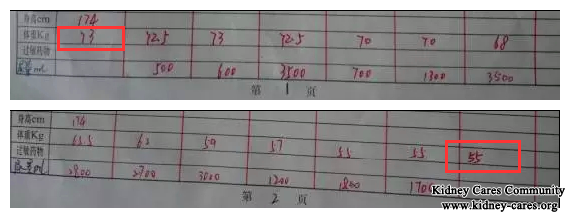 身高cm 174
体重Kg 73 72.5 73 72.5 70 70 68
过敏药物
尿量ml 500 600 3500 700 1300 3500
第 1 页
身高cm 174
体重Kg 65.5 62 59 57 55 55 55
过敏药物
尿量ml 2800 2700 3000 1200 1800 1700
第 2 页
Kidney Cares Community
www.kidney-cares.org